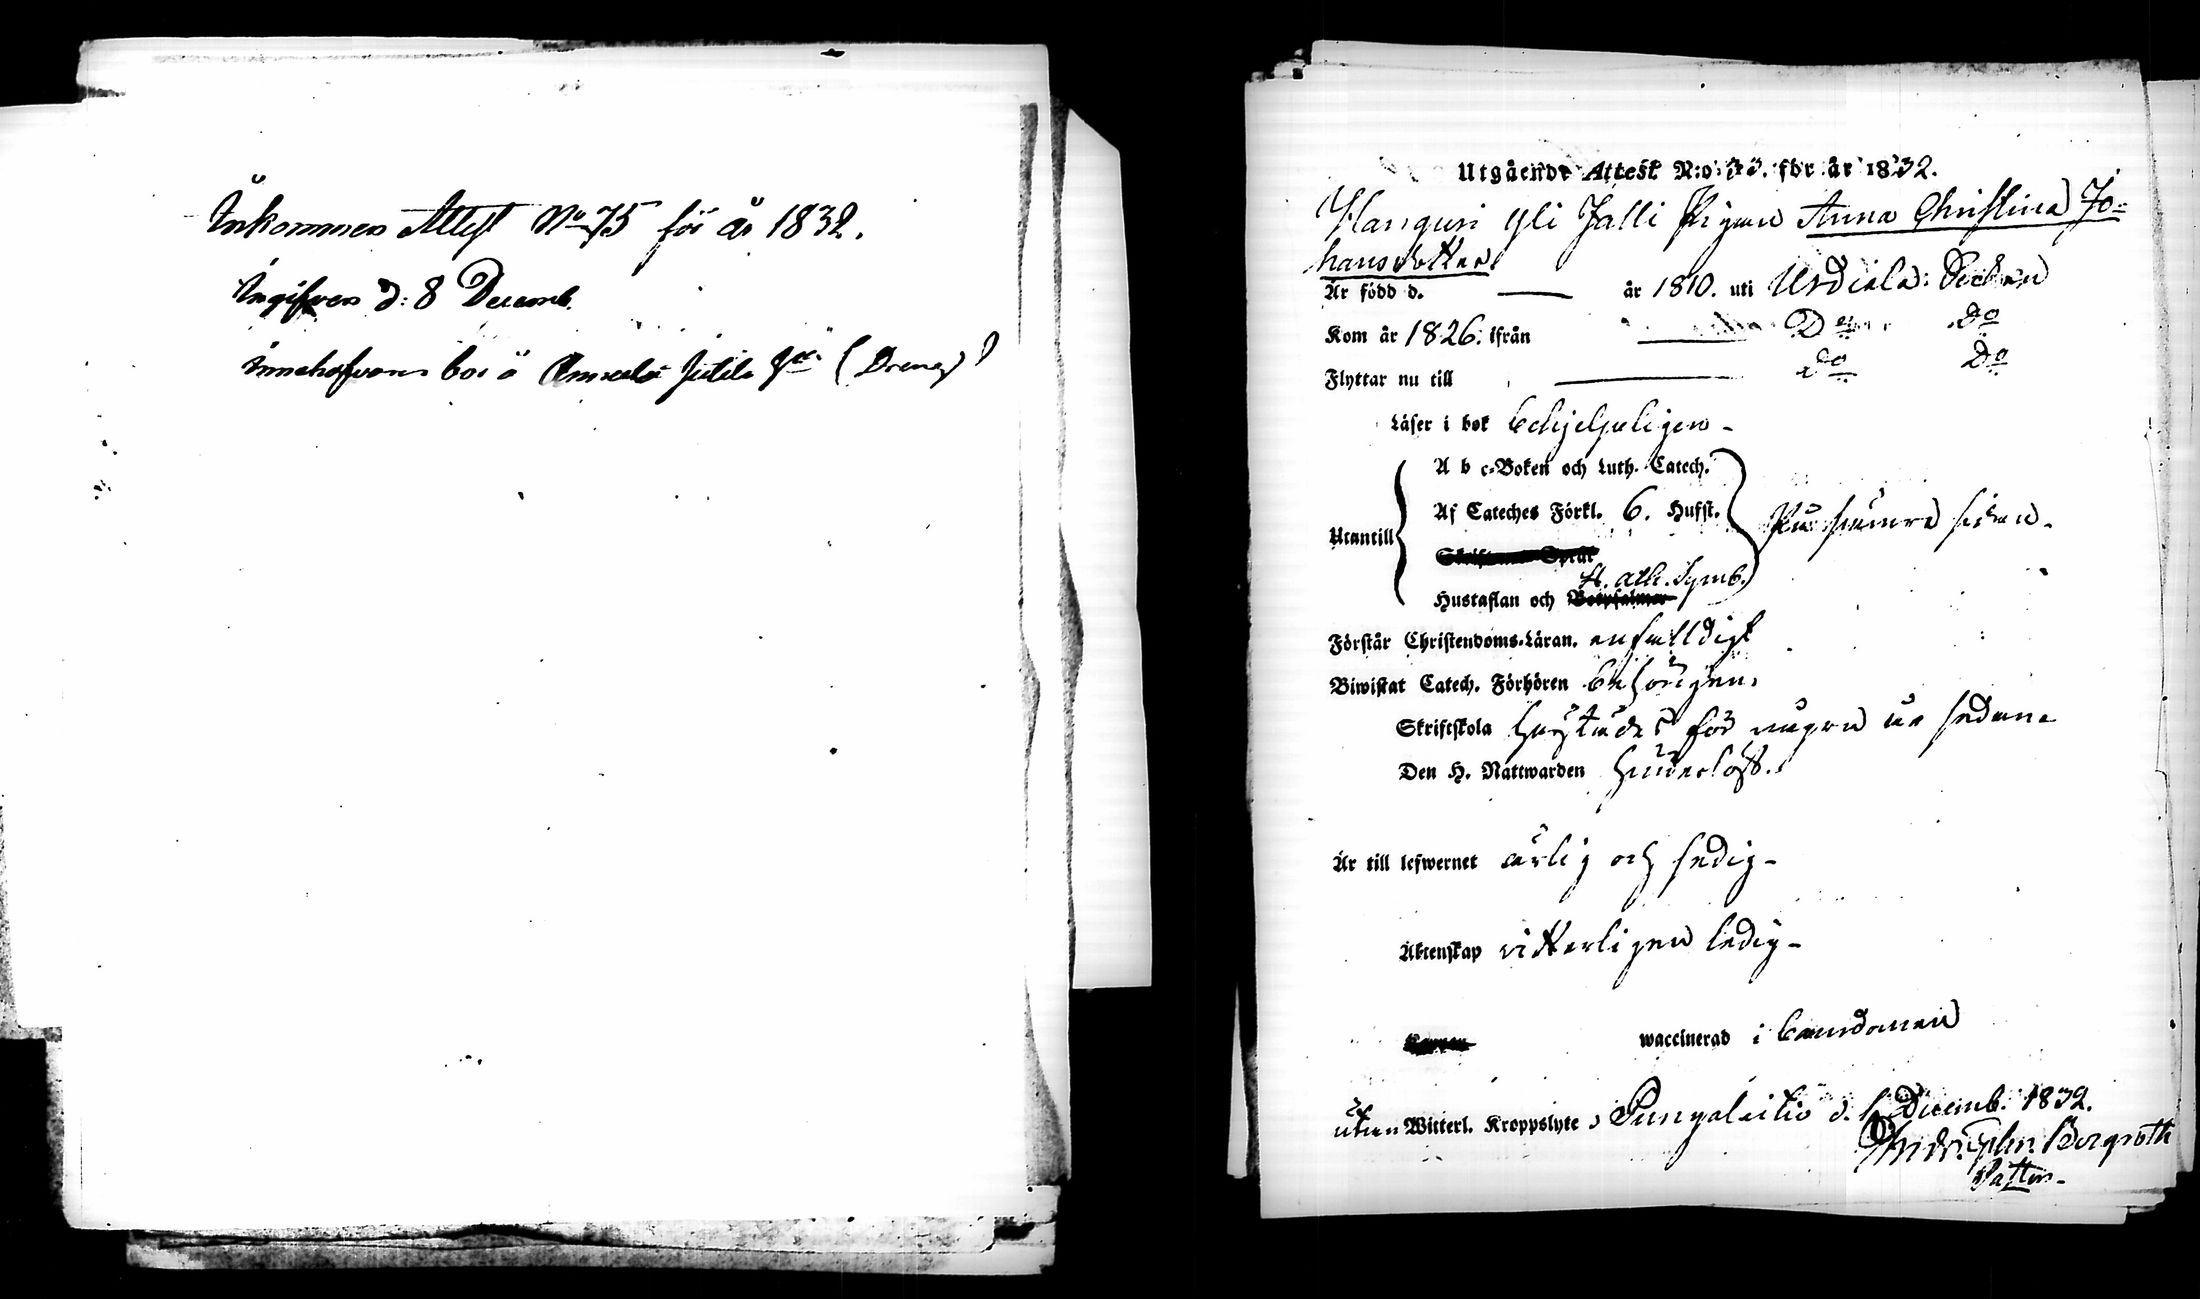 Inkommen Attest No 75 för år 1832.
Ingifven d: 8 Decemb.
Innehafvaren bor å Annula Jutila
Utgående Attest N:o 30. för år 1832.
Yli Jalli Pigan Anna Christina Jo=
hansdotter
Är född d. — år 1810. uti Urdiala Sockn
Kom år 1826. ifrån — Do Do
Flyttar nu till — Do Do
Läser i bok behjelpeligen -
A b c-Boken och Luth. Catech.
Af Cateches Förkl. 6. Hufst.
Utantill
Skriftenes Språk
St. Ath. Symb.
Hustaflan och Botpsalmer
Förstår Christendoms-Läran. enfalldigt
Biwistat Catech. Förhören behörigen.
Skriftskola för några år sedan
Den H. Nattwarden hinderlöst.
Är till lefwernet ärlig och sedig -
Äktenskap vitterligen ledig -
waccinerad i barndomen
utan Witterl. Kroppslyte, Pungalaitio d. Decemb. 1832.
Andr. Ephr. Bergroth
Pastor -